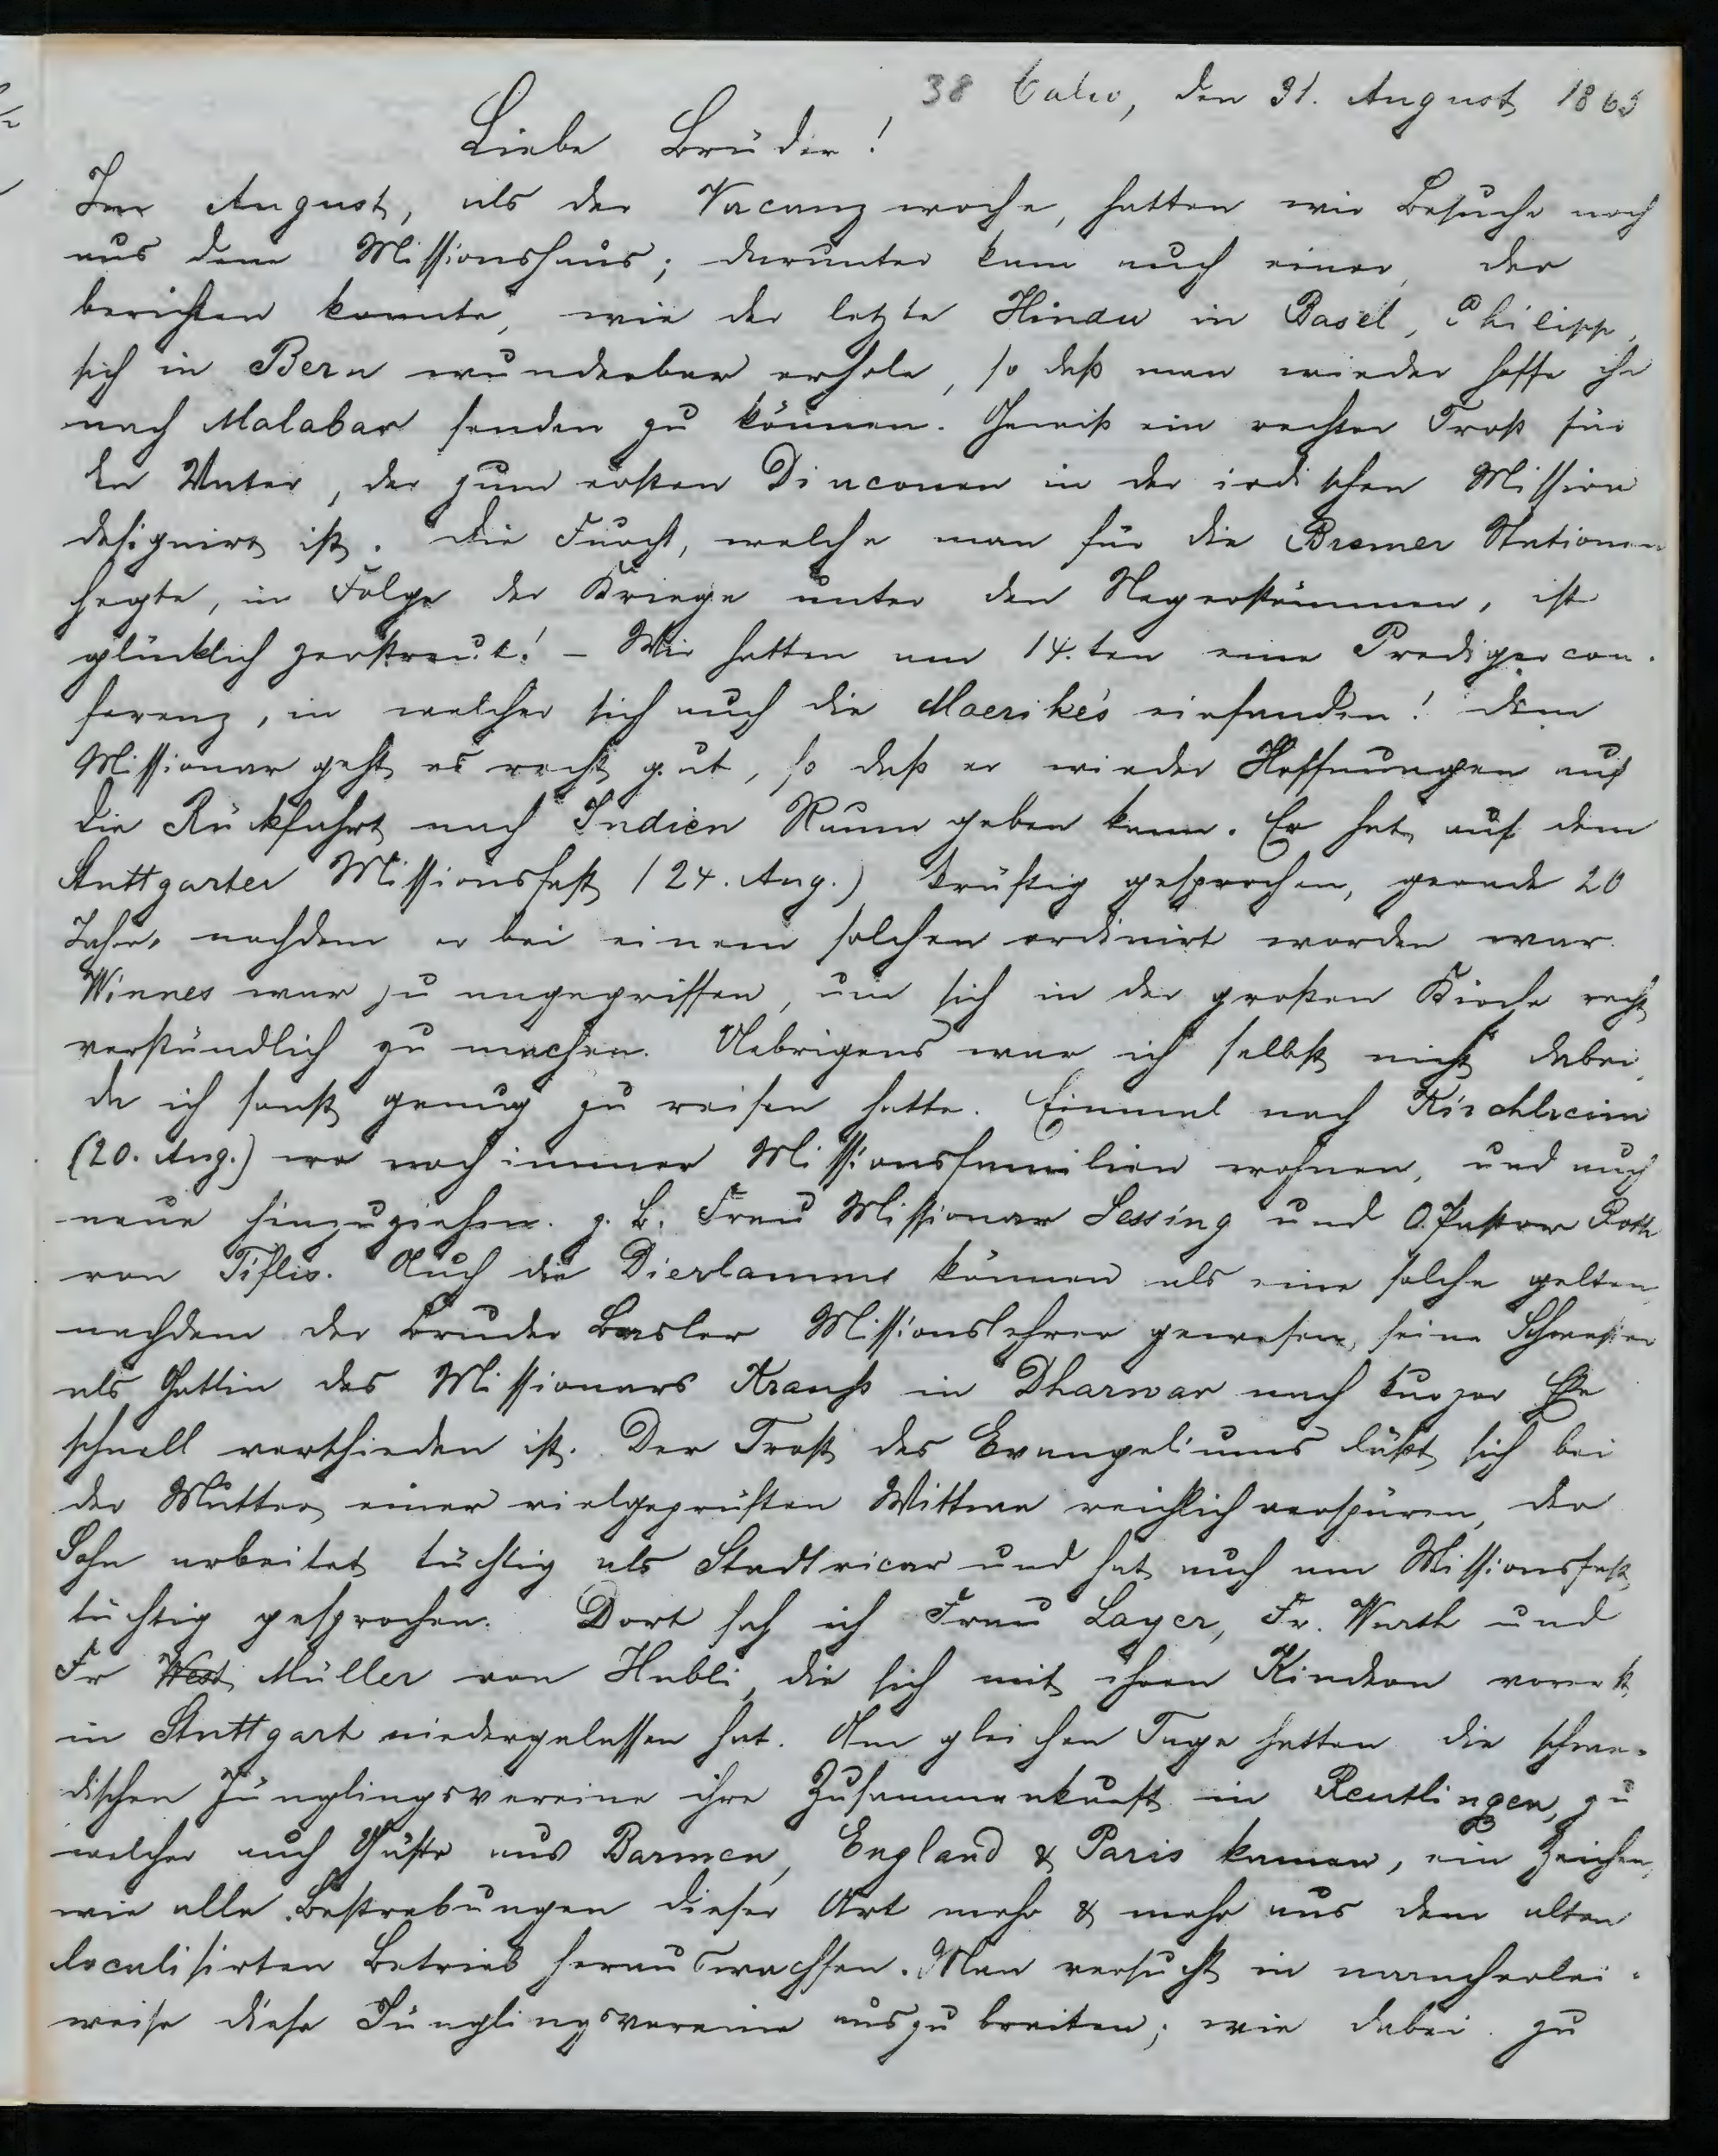 38 Calw, den 31. August 1865
Liebe Brüder!
Im August, als der Vacanzwoche, hatten wir Besuche noch
aus dem Missionshaus; darunter kam auch einer, der
berichten konnte, wie der letzte Hindu in Basel, Philipp,
sich in Bern wunderbar erhole, so daß man wieder hoffe ihn
nach Malabar senden zu können. Gewiß ein rechter Trost für
den Vater, der zum ersten Diaconen in der indischen Mission
designirt ist. Die Furcht, welche man für die Bremer Stationen
hegte, in Folge der Kriege unter den Negerstämmen, ist
glücklich zerstreut! – Wir hatten am 14.ten eine Predigercon-
ferenz, in welcher sich auch die Moerike's einfanden! Dem
Missionar geht es recht gut, so daß er wieder Hoffnungen auf
die Rückfahrt nach Indien Raum geben kann. Er hat auf dem
Stuttgarter Missionsfest (24. Aug.) kräftig gesprochen, gerade 20
Jahre, nachdem er bei einem solchen ordinirt worden war.
Winnes war zu angegriffen, um sich in der großen Kirche recht
verständlich zu machen. Uebrigens war ich selbst nicht dabei,
da ich sonst genug zu reisen hatte. Einmal nach Kirchheim
(20. Aug.) wo noch immer Missionsfamilien wohnen, und auch
neue hinzuziehen. z. B. Frau Missionar Lessing und O. Pastor Roth
von Tiflis. Auch die Dierlamms können als eine solche gelten,
nachdem der Bruder Basler Missionslehrer gewesen, seine Schwester
als Gattin des Missionars Krauß in Dharwar nach kurzer Ehe
schnell verschieden ist. Der Trost des Evangeliums läßt sich bei
der Mutter, einer vielgeprüften Wittwe reichlich verspüren, der
Sohn arbeitet tüchtig als Stadtvicar und hat auch am Missionsfest
tüchtig gesprochen. Dort sah ich Frau Layer, Fr. Würth und
Fr West Müller von Hubli, die sich mit ihren Kindern vorerst
in Stuttgart niedergelassen hat. Am gleichen Tage hatten die schwä-
bischen Jünglingsvereine ihre Zusammenkunft in Reutlingen, zu
welcher auch Gäste aus Barmen, England & Paris kamen, ein Zeichen,
wie alle Bestrebungen dieser Art mehr & mehr aus dem alten
localisirten Betrieb herauswachsen. Man versucht in mancherlei-
weise diese Jünglingsvereine auszubreiten; wie dabei zu